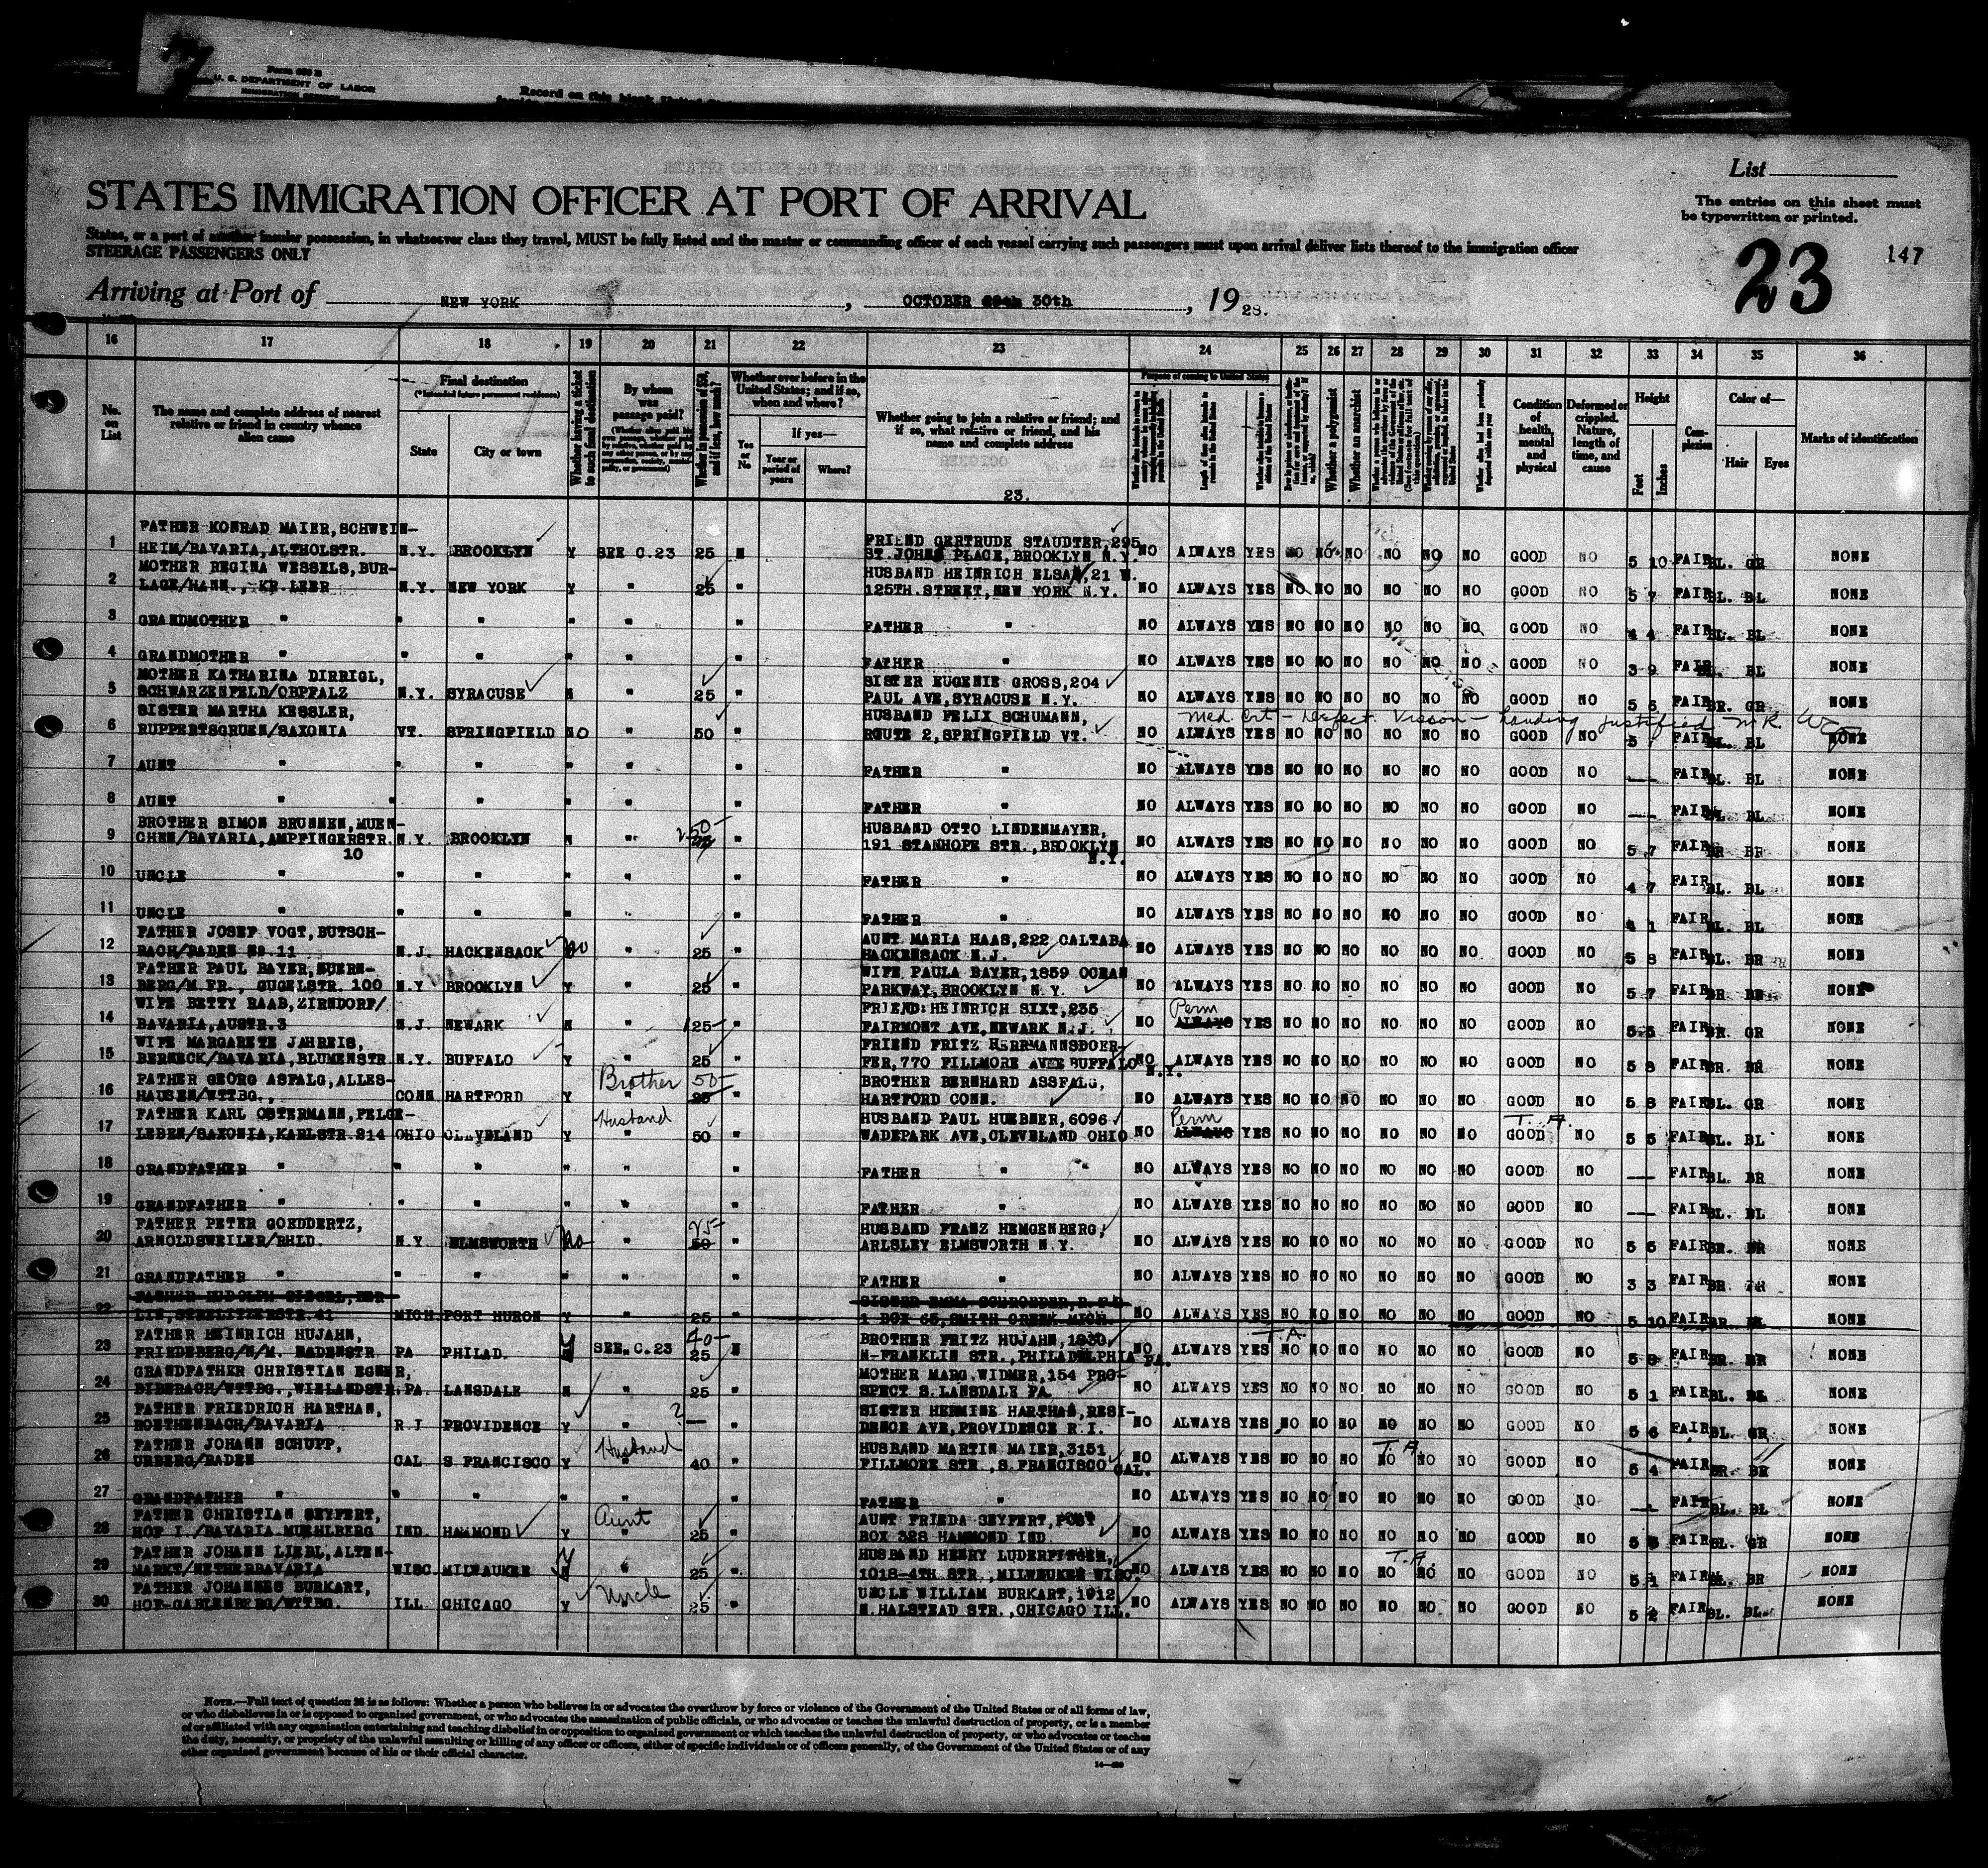 Form 500 B
U. S. DEPARTMENT OF LABOR
IMMIGRATION SERVICE
Record on this blank United
STATES IMMIGRATION OFFICER AT PORT OF ARRIVAL
List
The entries on this sheet must
be typewritten or printed.
States, or a part of another insular possession, in whatsoever class they travel, MUST be fully listed and the master or commanding officer of each vessel carrying such passengers must upon arrival deliver lists thereof to the immigration officer
STEERAGE PASSENGERS ONLY
23 147
Arriving at Port of NEW YORK, OCTOBER 30th, 1928.
16 17 18 19 20 21 22 23 24 25 26 27 28 29 30 31 32 33 34 35 36
No. on List
The name and complete address of nearest relative or friend in country whence alien came
Final destination
(*Intended future permanent residence)
State City or town
Whether having a ticket to such final destination
By whom was passage paid?
Whether in possession of $50, and if less, how much?
Whether ever before in the United States; and if so, when and where?
Yes or No
If yes—
Year or period of years
Where?
Whether going to join a relative or friend; and if so, what relative or friend, and his name and complete address
23.
Purpose of coming to United States
Length of time alien intends to remain in the United States
Whether a polygamist
Whether an anarchist
Condition of health, mental and physical
Deformed or crippled. Nature, length of time, and cause
Height
Feet Inches
Complexion
Color of—
Hair Eyes
Marks of identification
FATHER KONRAD MAIER, SCHWEIN-
1 HEIM/BAVARIA, ALTHOLSTR. N.Y. BROOKLYN Y SEE C.23 25 N FRIEND GERTRUDE STAUDTER, 295
ST. JOHNS PLACE, BROOKLYN N.Y. NO ALWAYS YES NO NO NO NO NO NO GOOD NO 5 10 FAIR BL. GR NONE
MOTHER REGINA WESSELS, BUR-
2 LAGE/HANN., KR. LEER N.Y. NEW YORK Y " 25 " HUSBAND HEINRICH ELSAN, 21 W.
125TH. STREET, NEW YORK N.Y. NO ALWAYS YES NO NO NO NO NO NO GOOD NO 5 7 FAIR BL. BL NONE
3 GRANDMOTHER " " " " " " FATHER " NO ALWAYS YES NO NO NO NO NO NO GOOD NO 4 4 FAIR BL. BL NONE
4 GRANDMOTHER " " " " " " FATHER " NO ALWAYS YES NO NO NO NO NO NO GOOD NO 3 9 FAIR BL. BL NONE
MOTHER KATHARINA DIRRIGL,
5 SCHWARZENFELD/OBPFALZ N.Y. SYRACUSE N " 25 " SISTER EUGENIE GROSS, 204
PAUL AVE, SYRACUSE N.Y. NO ALWAYS YES NO NO NO NO NO NO GOOD NO 5 6 FAIR BR. GR NONE
SISTER MARTHA KESSLER,
Med Crt - Defect. Vision - Landing justified
6 RUPPERTSGRUEN/SAXONIA VT. SPRINGFIELD NO " 50 " HUSBAND FELIX SCHUMANN,
ROUTE 2, SPRINGFIELD VT. NO ALWAYS YES NO NO NO NO NO NO GOOD NO 5 FAIR BL. BL NONE
7 AUNT " " " " " " FATHER " NO ALWAYS YES NO NO NO NO NO NO GOOD NO — FAIR BL. BL NONE
8 AUNT " " " " " FATHER " NO ALWAYS YES NO NO NO NO NO NO GOOD NO — FAIR BL. BL NONE
BROTHER SIMON BRUNNEN, MUEN-
9 CHEN/BAVARIA, AMPFINGERSTR. 10 N.Y. BROOKLYN N " 250- " HUSBAND OTTO LINDENMAYER,
191 STANHOPE STR., BROOKLYN N.Y. NO ALWAYS YES NO NO NO NO NO NO GOOD NO 5 7 FAIR BR BR NONE
10 UNCLE " " " " " " FATHER " NO ALWAYS YES NO NO NO NO NO NO GOOD NO 4 7 FAIR BL. BL NONE
11 UNCLE " " " " " " FATHER " NO ALWAYS YES NO NO NO NO NO NO GOOD NO 4 1 FAIR BL. BL NONE
FATHER JOSEF VOGT, BUTSCH-
12 BACH/BADEN No. 11 N.J. HACKENSACK NO " 25 " AUNT MARIA HAAS, 222 CALTABA
HACKENSACK N.J. NO ALWAYS YES NO NO NO NO NO NO GOOD NO 5 8 FAIR BL. BR NONE
FATHER PAUL BAYER, NUERN-
13 BERG/M.FR., GUGELSTR. 100 N.Y BROOKLYN Y " 25 " WIFE PAULA BAYER, 1859 OCEAN
PARKWAY, BROOKLYN N.Y. NO ALWAYS YES NO NO NO NO NO NO GOOD NO 5 7 FAIR BR NONE
WIFE BETTY RAAB, ZIRNDORF/
14 BAVARIA, AUSTR. 3 N.J. NEWARK N " 125- " FRIEND: HEINRICH SIXT, 235
FAIRMONT AVE, NEWARK N.J. NO Perm ALWAYS YES NO NO NO NO NO NO GOOD NO 5 5 FAIR BR. GR NONE
WIFE MARGARETE JAHREIS,
15 BERNECK/BAVARIA, BLUMENSTR. N.Y. BUFFALO Y " 25 " FRIEND FRITZ HERRMANNSDOER-
FER, 770 FILLMORE AVEE BUFFALO N.Y. NO ALWAYS YES NO NO NO NO NO NO GOOD NO 5 8 FAIR BR. BR NONE
FATHER GEORG ASFALG, ALLES-
16 HAUSEN/WTTBG., CONN HARTFORD Y Brother " 50- 25 " BROTHER BERNHARD ASSFALG,
HARTFORD CONN. NO ALWAYS YES NO NO NO NO NO NO GOOD NO 5 8 FAIR BL. GR NONE
FATHER KARL OSTERMANN, FELGE-
17 LEBEN/SAXONIA, KARLSTR. 214 OHIO CLEVELAND Y Husband " 50 " HUSBAND PAUL HUEBNER, 6096
WADEPARK AVE, CLEVELAND OHIO NO Perm ALWAYS YES NO NO NO NO NO NO T.A. GOOD NO 5 5 FAIR BL. BL NONE
18 GRANDFATHER " " " " " " FATHER " NO ALWAYS YES NO NO NO NO NO NO GOOD NO — FAIR BL. BR NONE
19 GRANDFATHER " " " " " " FATHER " NO ALWAYS YES NO NO NO NO NO NO GOOD NO — FAIR BL. BL NONE
FATHER PETER GOEDDERTZ,
20 ARNOLDSWEILER/RHLD. N.Y ELMSWORTH NO " 25- 50 " HUSBAND FRANZ HEMGENBERG,
ARLSLEY ELMSWORTH N.Y. NO ALWAYS YES NO NO NO NO NO NO GOOD NO 5 6 FAIR BR. BR NONE
21 GRANDFATHER " " " " " " FATHER " NO ALWAYS YES NO NO NO NO NO NO GOOD NO 3 3 FAIR BR. NONE
22 LIN, STRELITZERSTR. 41 MICH PORT HURON Y 25 " SISTER EMMA SCHROEDER, R.F.D
1 BOX 65, SMITH CREEK MICH. NO ALWAYS YES NO NO NO NO NO NO GOOD NO 5 10 FAIR BR. NONE
FATHER HEINRICH HUJAHN,
23 FRIEDEBERG/N/M. BADENSTR. PA PHILAD. Y SEE C.23 40- 25 N BROTHER FRITZ HUJAHN, 1930
N-FRANKLIN STR., PHILADELPHIA PA. NO ALWAYS T.A. YES NO NO NO NO NO NO GOOD NO 5 8 FAIR BR. BR NONE
GRANDFATHER CHRISTIAN EGNER,
24 BIBERACH/WTTBG., WIELANDSTR. PA. LANSDALE N " 25 " MOTHER MARG. WIDMER, 154 PRO-
SPECT S. LANSDALE PA. NO ALWAYS YES NO NO NO NO NO NO GOOD NO 5 1 FAIR BL. NONE
FATHER FRIEDRICH HARTHAN,
25 ROETHENBACH/BAVARIA R.J PROVIDENCE Y " ? — " SISTER HERMINE HARTHAN, RESI-
DENCE AVE, PROVIDENCE R.I. NO ALWAYS YES NO NO NO NO NO NO GOOD NO 5 6 FAIR BL. GR NONE
FATHER JOHANN SCHUPP,
26 URBERG/BADEN CAL S FRANCISCO Y Husband " 40 " HUSBAND MARTIN MAIER, 3151
FILLMORE STR., S. FRANCISCO CAL. NO ALWAYS YES NO NO NO T.A. NO NO NO GOOD NO 5 4 FAIR BR. BR NONE
27 GRANDFATHER " " " " " " FATHER " NO ALWAYS YES NO NO NO NO NO NO GOOD NO — FAIR BL. BL NONE
FATHER CHRISTIAN SEYFERT,
28 HOF I./BAVARIA MUEHLBERG IND. HAMMOND Y Aunt " 25 " AUNT FRIEDA SEYFERT, POST
BOX 328 HAMMOND IND. NO ALWAYS YES NO NO NO NO NO NO GOOD NO 5 FAIR BL. GR NONE
FATHER JOHANN LIEBL, ALTEN-
29 MARKT/NETHERBAVARIA WISC. MILWAUKEE Y " 25 " HUSBAND HENRY LUDERFINGER,
1018-4TH. STR., MILWEUKEE WISC. NO ALWAYS YES NO NO NO T.A. NO NO NO GOOD NO 5 1 FAIR BL. BR NONE
FATHER JOHANNES BURKART,
30 HOF-GAHLENBERG/WTTBG. ILL. CHICAGO Y Uncle " 25 " UNCLE WILLIAM BURKART, 1912
N. HALSTEAD STR., CHICAGO ILL. NO ALWAYS YES NO NO NO NO NO NO GOOD NO 5 2 FAIR BL. BL. NONE
NOTE.—Full text of question 28 is as follows: Whether a person who believes in or advocates the overthrow by force or violence of the Government of the United States or of all forms of law,
or who disbelieves in or is opposed to organized government, or who advocates the assassination of public officials, or who advocates or teaches the unlawful destruction of property, or is a member
of or affiliated with any organization entertaining and teaching disbelief in or opposition to organized government or which teaches the unlawful destruction of property, or who advocates or teaches
the duty, necessity, or propriety of the unlawful assaulting or killing of any officer or officers, either of specific individuals or of officers generally, of the Government of the United States or of any
other organized government because of his or their official character.